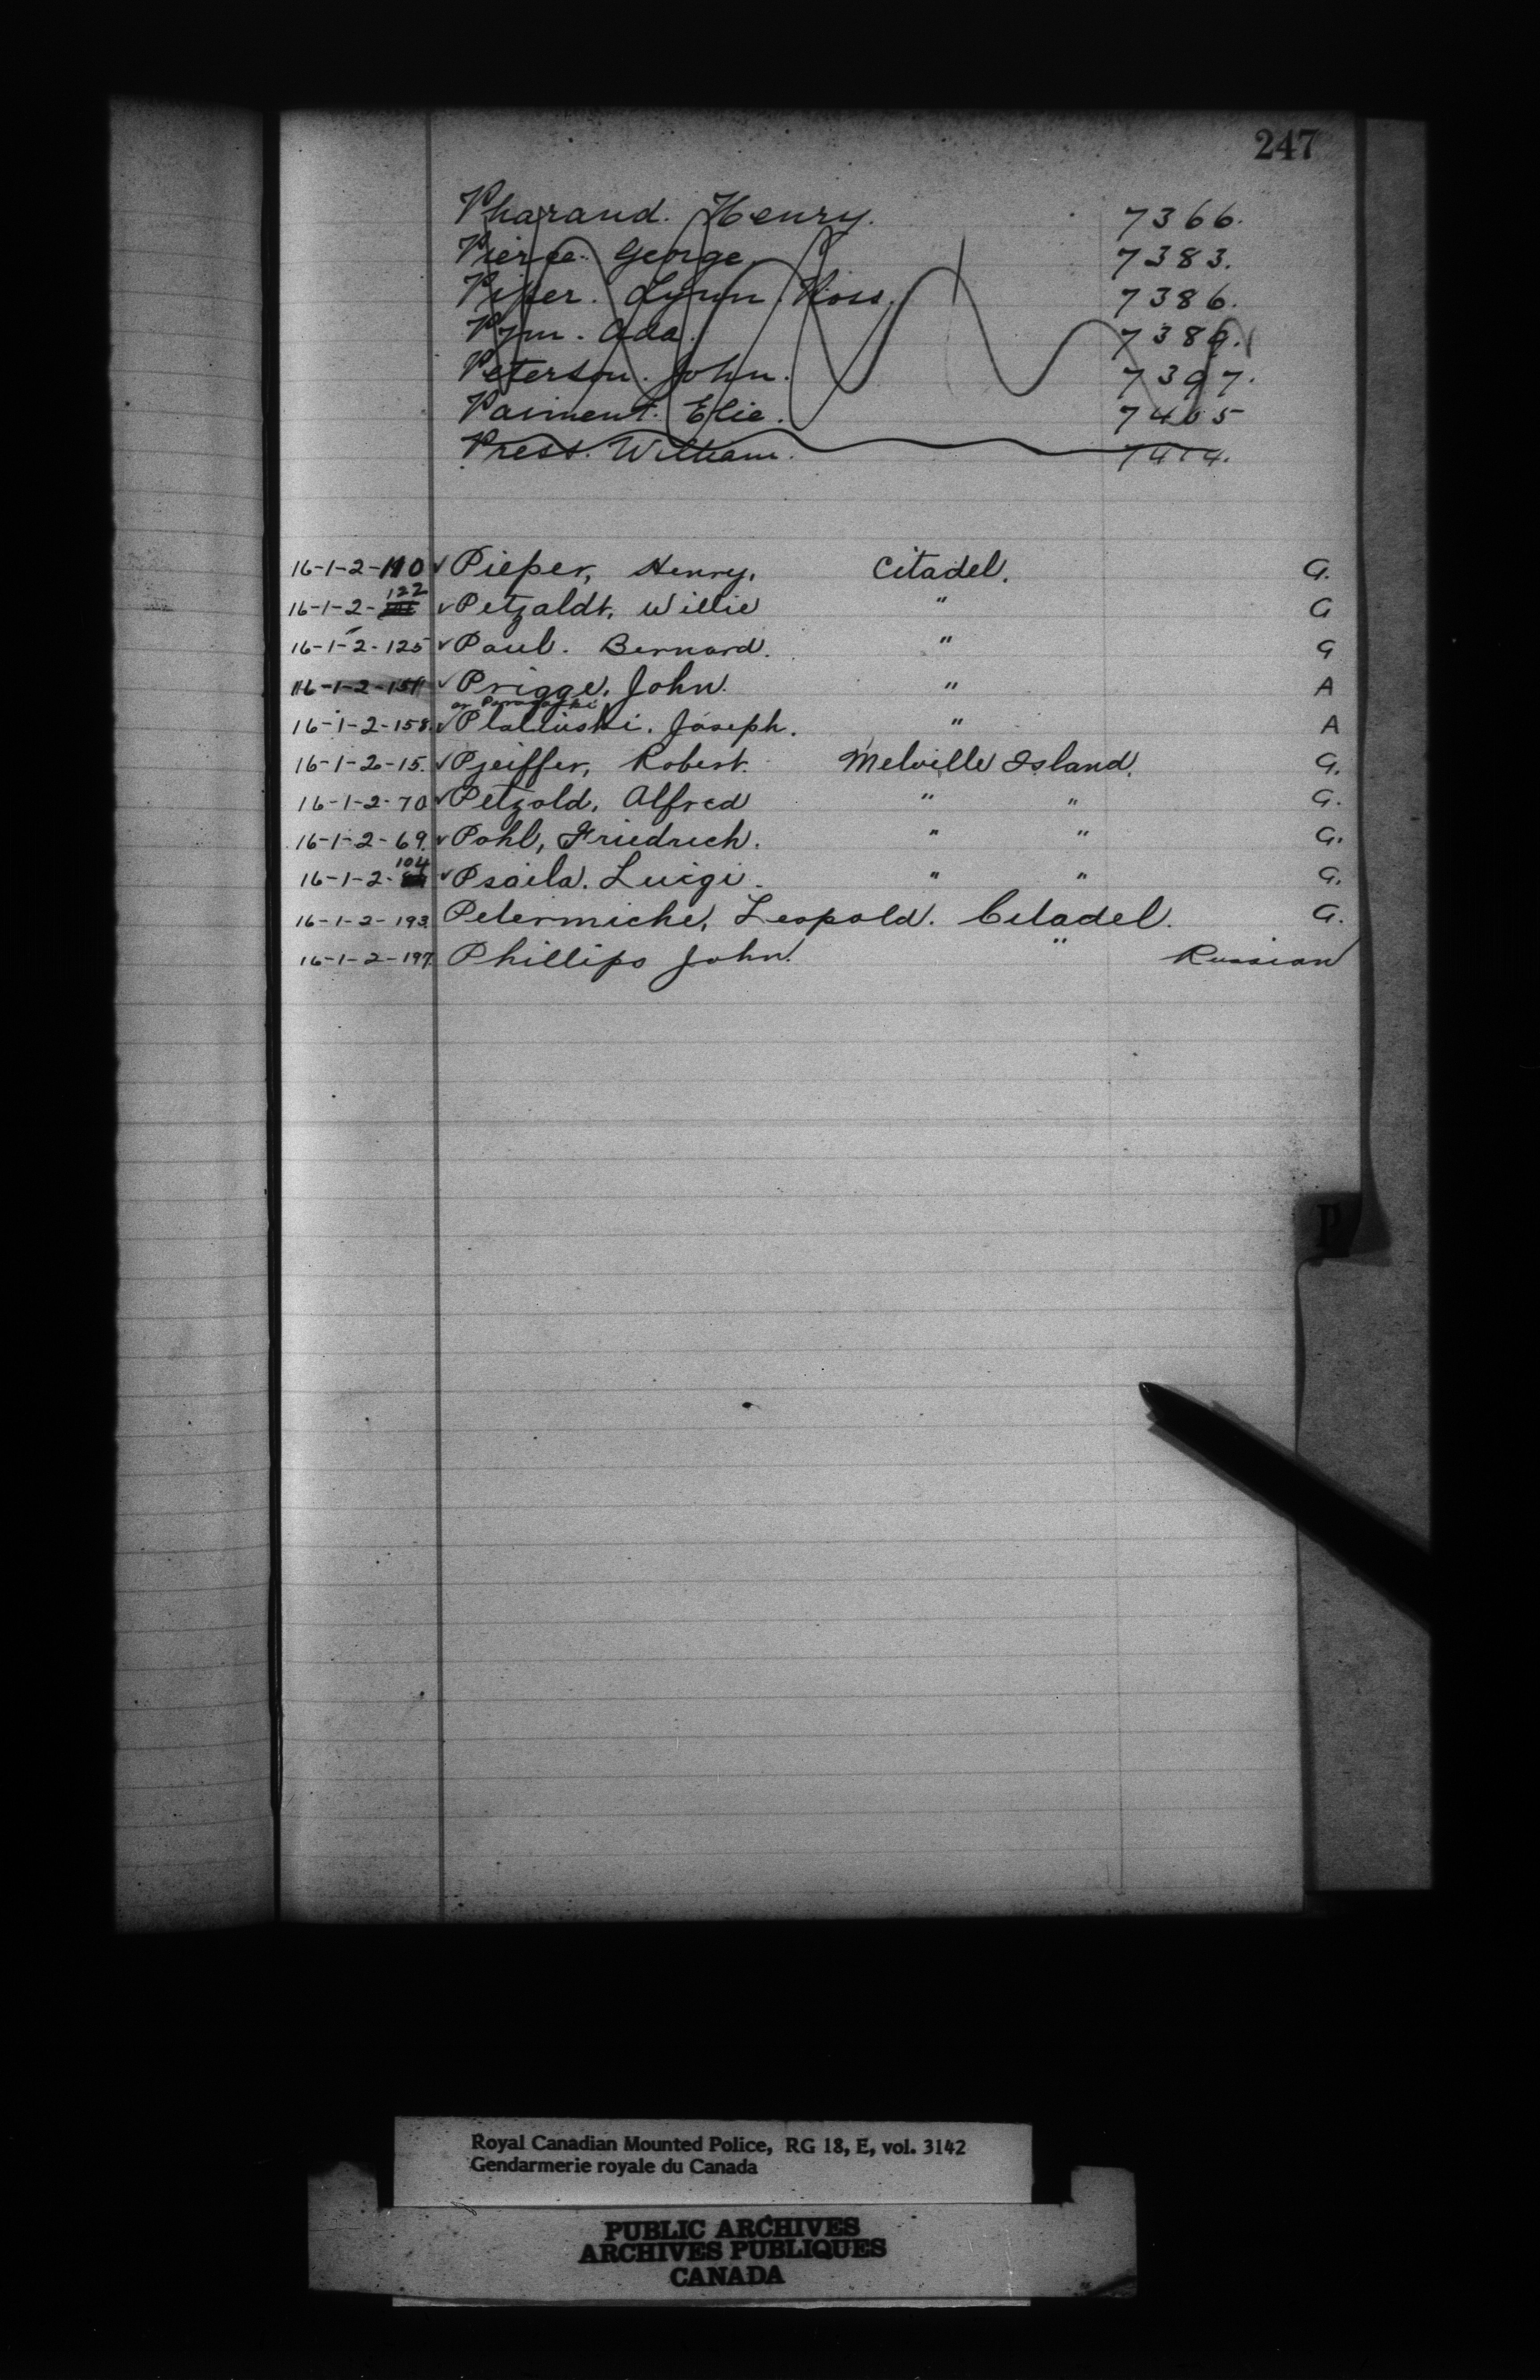 247
Pharand. Henry. 7366.
Pierce. George. 7383.
Piper. Lynn. Ross. 7386.
Pym. Ada. 7389.
Peterson. John. 7397.
Paiment. Elie. 7405
Press. William. 7414.
16-1-2-110 ✓ Pieper, Henry. Citadel. G.
122
16-1-2- ✓ Petzaldt, Willie " G
16-1-2-125 ✓ Paul. Bernard. " G
16-1-2-151 ✓ Prigge, John. " A
or
16-1-2-158. ✓ Platinski. Joseph. " A
16-1-2-15. ✓ Pfeiffer, Robert. Melville Island. G.
16-1-2-70 ✓ Petzold, Alfred " " G.
16-1-2-69. ✓ Pohl, Friedrich. " " G.
104
16-1-2- ✓ Psaila. Luigi. " " G.
16-1-2-193. Petermiche, Leopold. Citadel. G.
16-1-2-197. Phillips John. " Russian
P
Royal Canadian Mounted Police, RG 18, E, vol. 3142
Gendarmerie royale du Canada
PUBLIC ARCHIVES
ARCHIVES PUBLIQUES
CANADA